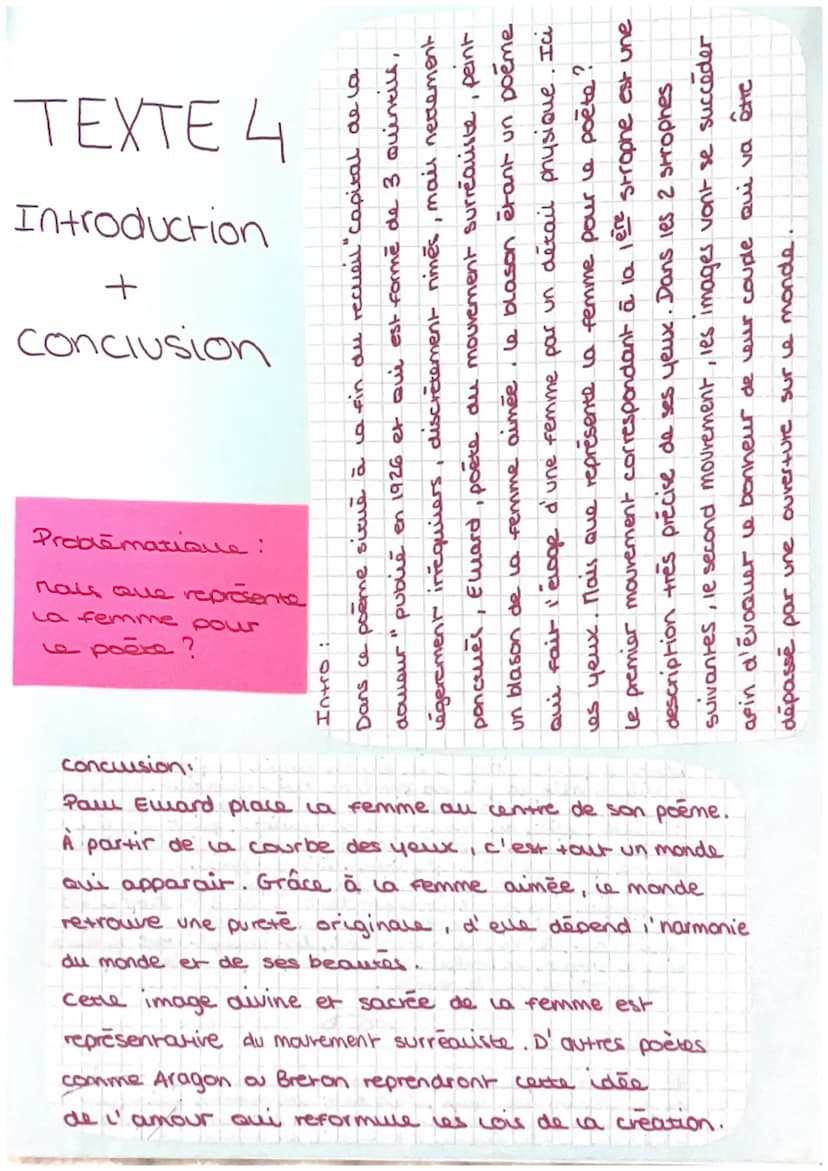 TEXTE 4
Introduction
+
Conclusion
Problématique :
Mais que représente
la femme pour
le poète ?
Intro :
Dans ce poème situé à la fin du recueil "Capital de la
douleur" publié en 1926 et qui est formé de 3 quintils,
légèrement irréguliers, discrètement rimés, mais nettement
ponctués, Eluard, poète du mouvement surréaliste, peint
un blason de la femme aimée. Le blason étant un poème
qui fait l'éloge d'une femme par un détail physique. Ici
les yeux. Mais que représente la femme pour le poète ?
Le premier mouvement correspondant à la 1ère strophe est une
description très précise de ses yeux. Dans les 2 strophes
suivantes, le second mouvement, les images vont se succéder
afin d'évoquer le bonheur de leur couple qui va être
dépassé par une ouverture sur le monde.
Conclusion:
Paul Eluard place la femme au centre de son poème.
À partir de la courbe des yeux, c'est tout un monde
qui apparait. Grâce à la femme aimée, le monde
retrouve une pureté originale, d'elle dépend l'harmonie
du monde et de ses beautés.
Cette image divine et sacrée de la femme est
représentative du mouvement surréaliste. D'autres poètes
comme Aragon ou Breton reprendront cette idée
de l'amour qui reformule les lois de la création.